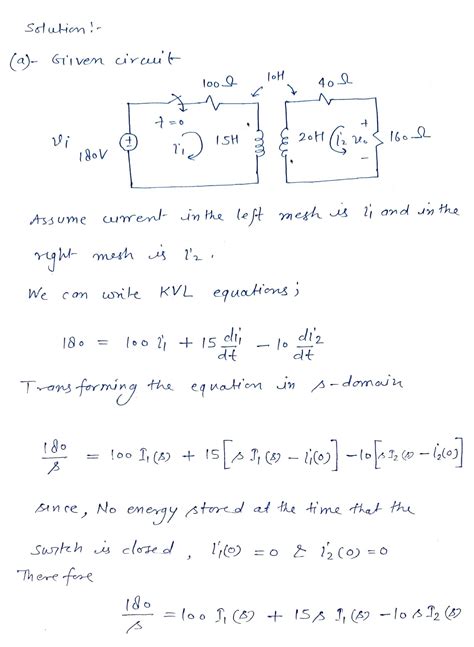 Solution:-
(a)- Given circuit
100Ω 10H 40Ω
t=0
Vi 180V i1 15H 20H i2 v0 160Ω
+
-
Assume current in the left mesh is i1 and in the
right mesh is i2.
We can write KVL equations;
180 = 100 i1 + 15 di1/dt - 10 di2/dt
Transforming the equation in s-domain
180/s = 100 I1(s) + 15[s I1(s) - i1(0)] - 10[s I2(s) - i2(0)]
since, No energy stored at the time that the
switch is closed, i1(0) = 0 & i2(0) = 0
Therefore
180/s = 100 I1(s) + 15s I1(s) - 10s I2(s)